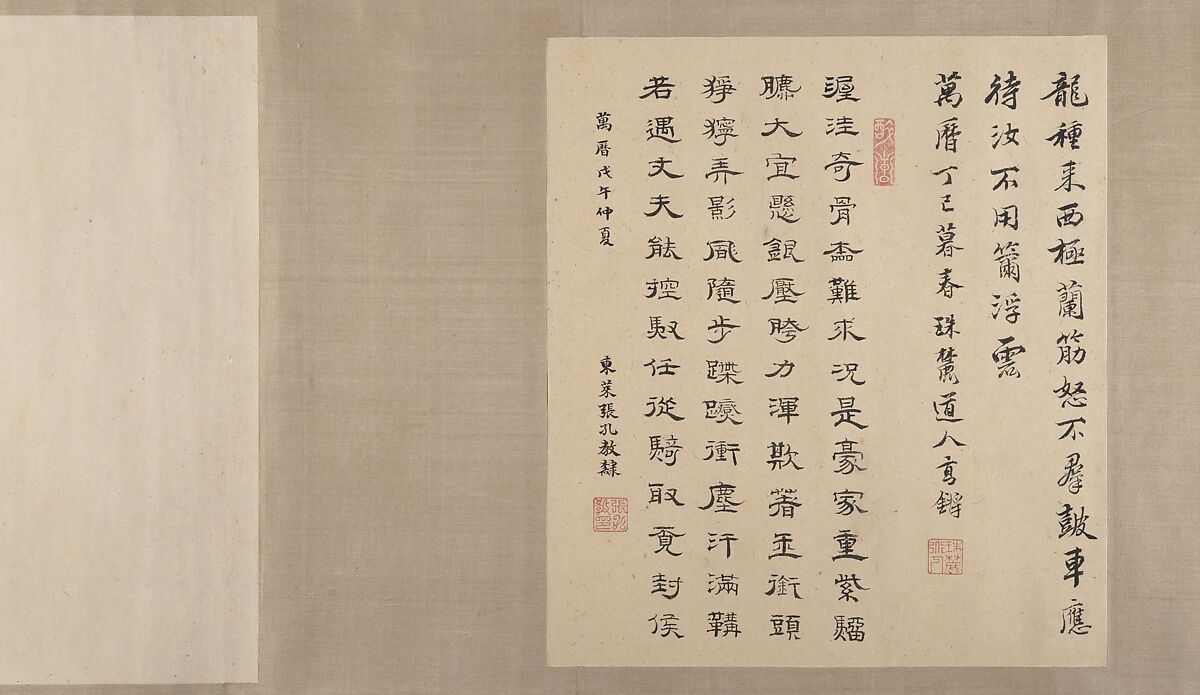 龍種来西極蘭筋怒不羣皷車應
待汝不用籋浮雲
萬曆丁巳暮春珠麓道人高鏘
渥洼奇骨本難求况是豪家重紫騮
臕大宜懸銀壓胯力渾欺著玉銜頭
猙獰弄影風隨步蹀躞衝塵汗滿鞲
若遇丈夫能控馭任從騎取覓封侯
萬曆戊午仲夏
東萊張孔教隸
張孔教印